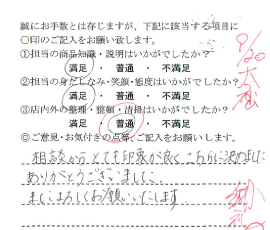 誠にお手数とは存じますが、下記に該当する項目に
〇印のご記入をお願い致します。
①担当の商品知識・説明はいかがでしたか?
満足 ・ 普通 ・ 不満足
②担当の身だしなみ・笑顔・態度はいかがでしたか?
満足 ・ 普通 ・ 不満足
③店内外の整理・整頓・清掃はいかがでしたか?
満足 ・ 普通 ・ 不満足
◎ご意見・お気付きの点等、ご記入をお願いします。
相談からとても印象が良く こちらに決めました
ありがとうございました。
またよろしくお願いいたします
9/20